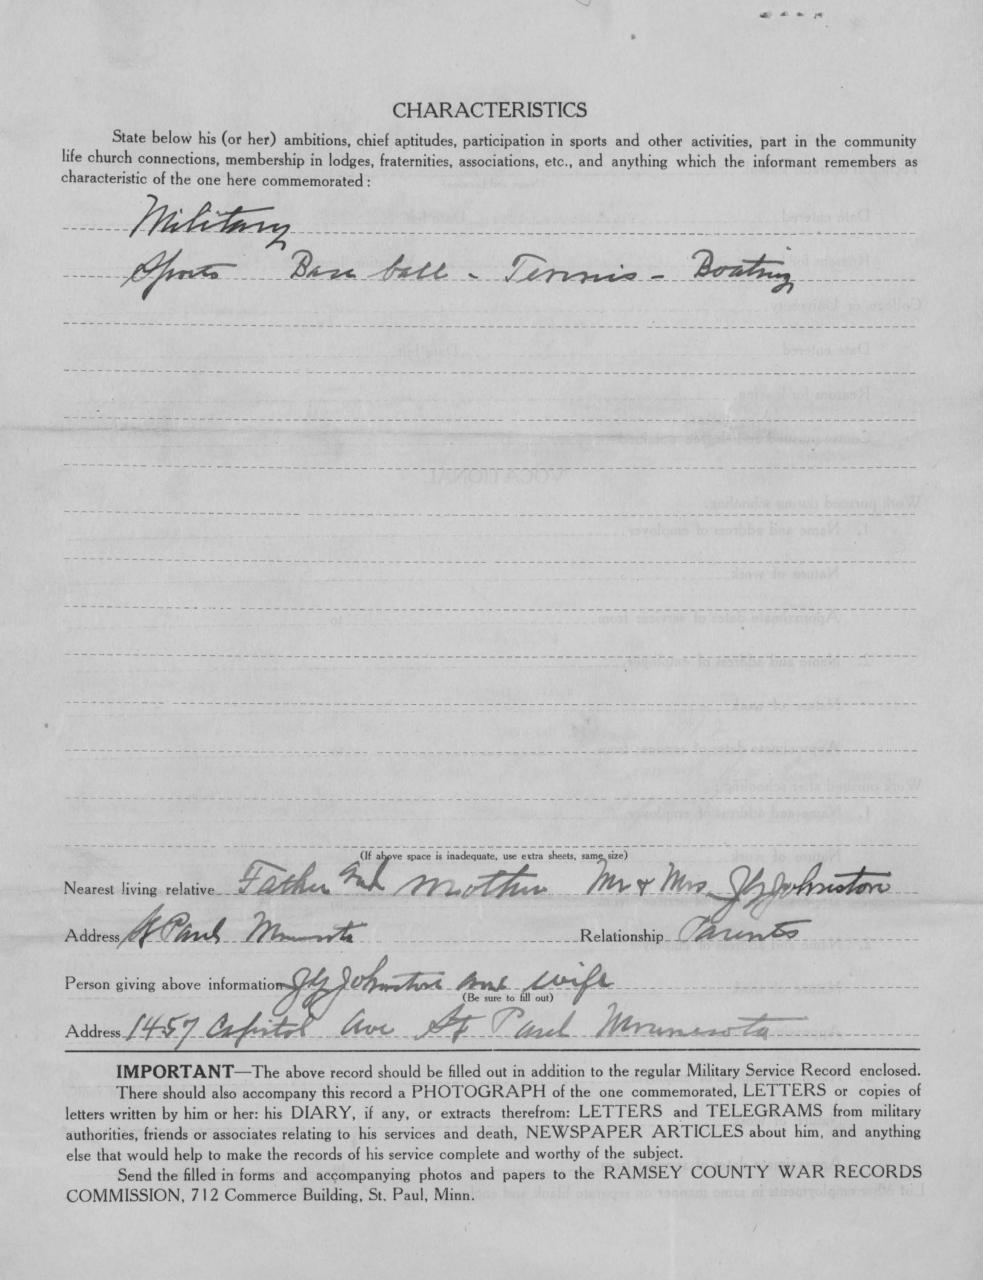 CHARACTERISTICS
State below his (or her) ambitions, chief aptitudes, participation in sports and other activities, part in the community
life church connections, membership in lodges, fraternities, associations, etc., and anything which the informant remembers as
characteristic of the one here commemorated:
Military
Sports Base ball - Tennis - Boating
(If above space is inadequate, use extra sheets, same size)
Nearest living relative Father and Mother Mr & Mrs J G Johnston
Address St Paul Minnesota Relationship Parents
Person giving above information J G Johnston and wife
(Be sure to fill out)
Address 1457 Capitol Ave St Paul Minnesota
IMPORTANT—The above record should be filled out in addition to the regular Military Service Record enclosed.
There should also accompany this record a PHOTOGRAPH of the one commemorated, LETTERS or copies of
letters written by him or her: his DIARY, if any, or extracts therefrom: LETTERS and TELEGRAMS from military
authorities, friends or associates relating to his services and death, NEWSPAPER ARTICLES about him, and anything
else that would help to make the records of his service complete and worthy of the subject.
Send the filled in forms and accompanying photos and papers to the RAMSEY COUNTY WAR RECORDS
COMMISSION, 712 Commerce Building, St. Paul, Minn.